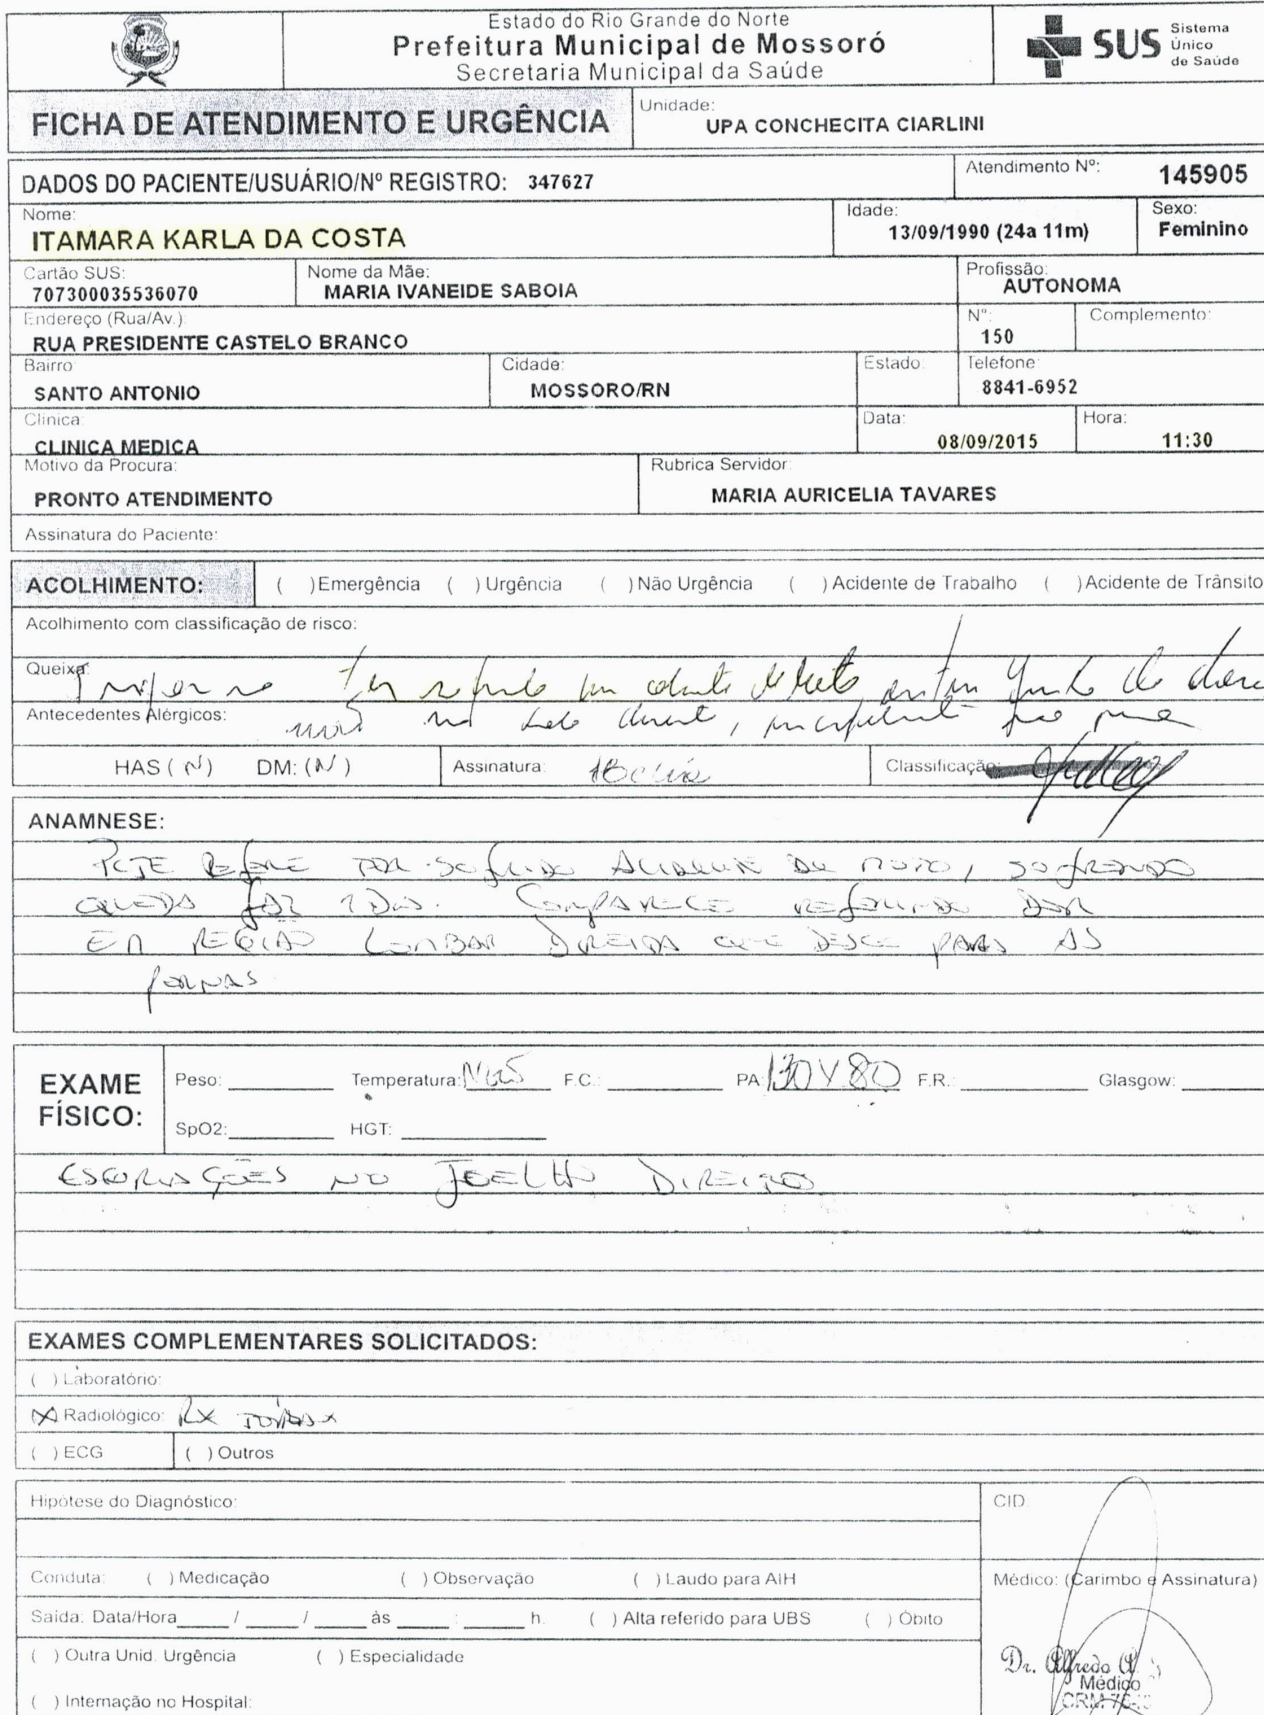 Estado do Rio Grande do Norte
Prefeitura Municipal de Mossoró
Secretaria Municipal da Saúde
SUS Sistema Único de Saúde
FICHA DE ATENDIMENTO E URGÊNCIA
Unidade:
UPA CONCHECITA CIARLINI
DADOS DO PACIENTE/USUÁRIO/Nº REGISTRO: 347627
Atendimento Nº: 145905
Nome: Idade: Sexo:
ITAMARA KARLA DA COSTA 13/09/1990 (24a 11m) Feminino
Cartão SUS: Nome da Mãe: Profissão:
707300035536070 MARIA IVANEIDE SABOIA AUTONOMA
Endereço (Rua/Av.): Nº: Complemento:
RUA PRESIDENTE CASTELO BRANCO 150
Bairro Cidade: Estado: Telefone:
SANTO ANTONIO MOSSORO/RN 8841-6952
Clinica: Data: Hora:
CLINICA MEDICA 08/09/2015 11:30
Motivo da Procura: Rubrica Servidor:
PRONTO ATENDIMENTO MARIA AURICELIA TAVARES
Assinatura do Paciente:
ACOLHIMENTO: ( )Emergência ( )Urgência ( )Não Urgência ( )Acidente de Trabalho ( )Acidente de Trânsito
Acolhimento com classificação de risco:
Queixa: ter sofrido um de
Antecedentes Alérgicos:
HAS (N) DM: (N) Assinatura: Classificação:
ANAMNESE:
PCTE REFERE TER SOFRIDO ACIDENTE DE MOTO, SOFRENDO
QUEDA FAZ DIAS. COMPARECE REFERINDO DOR
EM REGIÃO LOMBAR DIREITA QUE DESCE PARA AS
PERNAS
EXAME FÍSICO:
Peso: Temperatura: F.C.: PA: 130 X 80 F.R.: Glasgow:
SpO2: HGT:
ESCORIAÇÕES NO JOELHO DIREITO
EXAMES COMPLEMENTARES SOLICITADOS:
( ) Laboratório:
(X) Radiológico: RX TÓRAX
( ) ECG ( ) Outros
Hipótese do Diagnóstico: CID
Conduta: ( ) Medicação ( ) Observação ( ) Laudo para AIH Médico: (Carimbo e Assinatura)
Saída: Data/Hora / / às : h. ( ) Alta referido para UBS ( ) Óbito
( ) Outra Unid. Urgência ( ) Especialidade
Dr. Alfredo
Médico
CRM
( ) Internação no Hospital: